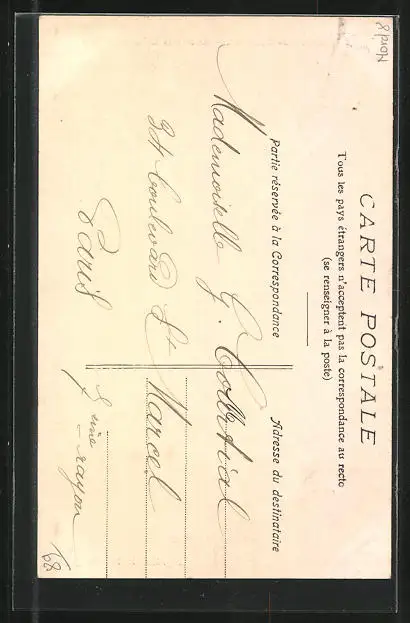 CARTE POSTALE
Tous les pays étrangers n'acceptent pas la correspondance au recto
(se renseigner à la poste)
Partie réservée à la Correspondance
Adresse du destinataire
Mademoiselle G.
34 boulevard St Marcel
Paris
68